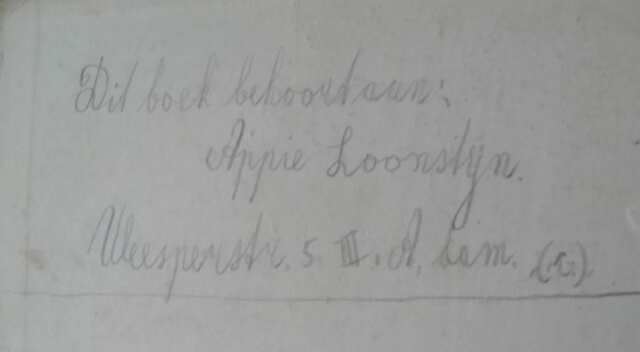 Dit boek behoort aan:
Appie Loonstijn.
Weesperstr. 5 III. A, dam.